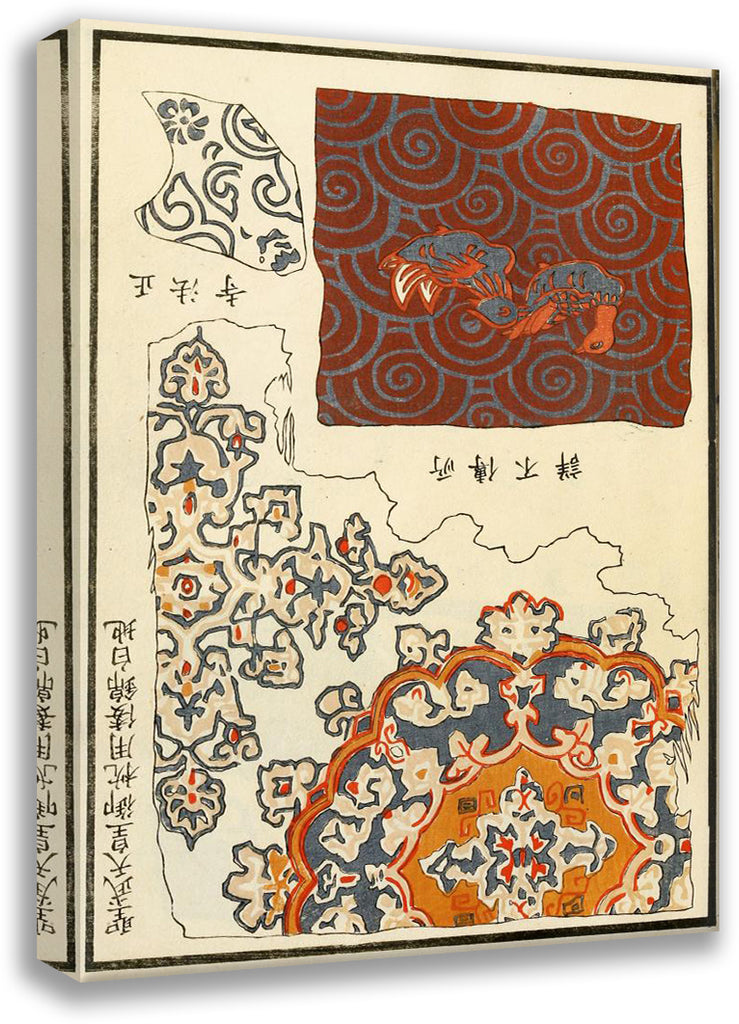 正法寺
所傳不詳
聖武天皇御枕用倭錦白地